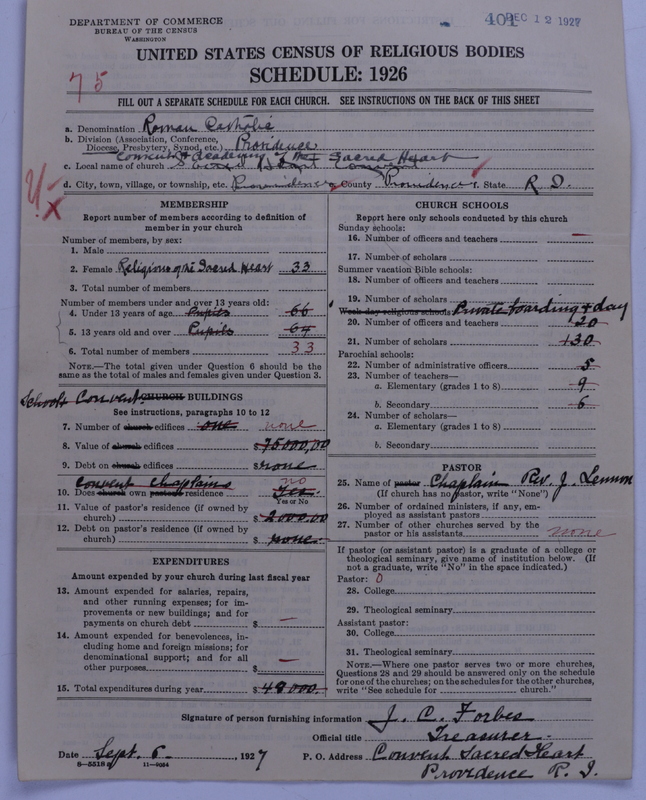 DEPARTMENT OF COMMERCE
BUREAU OF THE CENSUS
WASHINGTON
401 DEC 12 1927
UNITED STATES CENSUS OF RELIGIOUS BODIES
SCHEDULE: 1926
75
FILL OUT A SEPARATE SCHEDULE FOR EACH CHURCH. SEE INSTRUCTIONS ON THE BACK OF THIS SHEET
a. Denomination Roman Catholic
b. Division (Association, Conference, Diocese, Presbytery, Synod, etc.) Providence
Convent & Academy of the Sacred Heart
c. Local name of church
d. City, town, village, or township, etc. Providence County Providence State R. I.
MEMBERSHIP
Report number of members according to definition of
member in your church
Number of members, by sex:
1. Male
2. Female Religious of the Sacred Heart 33
3. Total number of members
Number of members under and over 13 years old:
4. Under 13 years of age Pupils 66
5. 13 years old and over Pupils 64
6. Total number of members 33
NOTE.—The total given under Question 6 should be the
same as the total of males and females given under Question 3.
Schools Convent CHURCH BUILDINGS
See instructions, paragraphs 10 to 12
7. Number of church edifices one none
8. Value of church edifices $75000,00
9. Debt on church edifices $none
Convent Chaplains no
10. Does church own pastor's residence Yes.
Yes or No
11. Value of pastor's residence (if owned by
church) $2000.00
12. Debt on pastor's residence (if owned by
church) $none.
EXPENDITURES
Amount expended by your church during last fiscal year
13. Amount expended for salaries, repairs,
and other running expenses; for im-
provements or new buildings; and for
payments on church debt $ —
14. Amount expended for benevolences, in-
cluding home and foreign missions; for
denominational support; and for all
other purposes $ —
15. Total expenditures during year $48000.
CHURCH SCHOOLS
Report here only schools conducted by this church
Sunday schools:
16. Number of officers and teachers —
17. Number of scholars
Summer vacation Bible schools:
18. Number of officers and teachers
19. Number of scholars
Week-day religious schools Private boarding & day
20. Number of officers and teachers 20
21. Number of scholars 130
Parochial schools:
22. Number of administrative officers 5
23. Number of teachers—
a. Elementary (grades 1 to 8) 9
b. Secondary 6
24. Number of scholars—
a. Elementary (grades 1 to 8)
b. Secondary
PASTOR
25. Name of pastor Chaplain Rev. J. Lennon
(If church has no pastor, write "None")
26. Number of ordained ministers, if any, em-
ployed as assistant pastors
27. Number of other churches served by the
pastor or his assistants none
If pastor (or assistant pastor) is a graduate of a college or
theological seminary, give name of institution below. (If
not a graduate, write "No" in the space indicated.)
Pastor: 0
28. College
29. Theological seminary
Assistant pastor:
30. College
31. Theological seminary
NOTE.—Where one pastor serves two or more churches,
Questions 28 and 29 should be answered only on the schedule
for one of the churches; on the schedules for the other churches,
write "See schedule for church."
Signature of person furnishing information J. C. Forbes
Official title Treasurer.
Date Sept. 6. 1927 P. O. Address Convent Sacred Heart
8—5518 11—9024 Providence R. I.